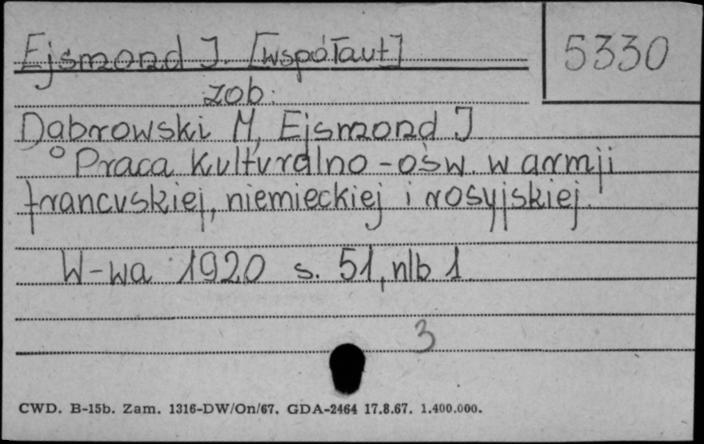 Ejsmond J. [współaut]
5330
zob.
Dąbrowski M, Ejsmond J
Praca kulturalno-ośw. w armji
francuskiej, niemieckiej i rosyjskiej.
W-wa 1920 s. 51, nlb 1
3
CWD. B-15b. Zam. 1316-DW/On/67. GDA-2464 17.8.67. 1.400.000.